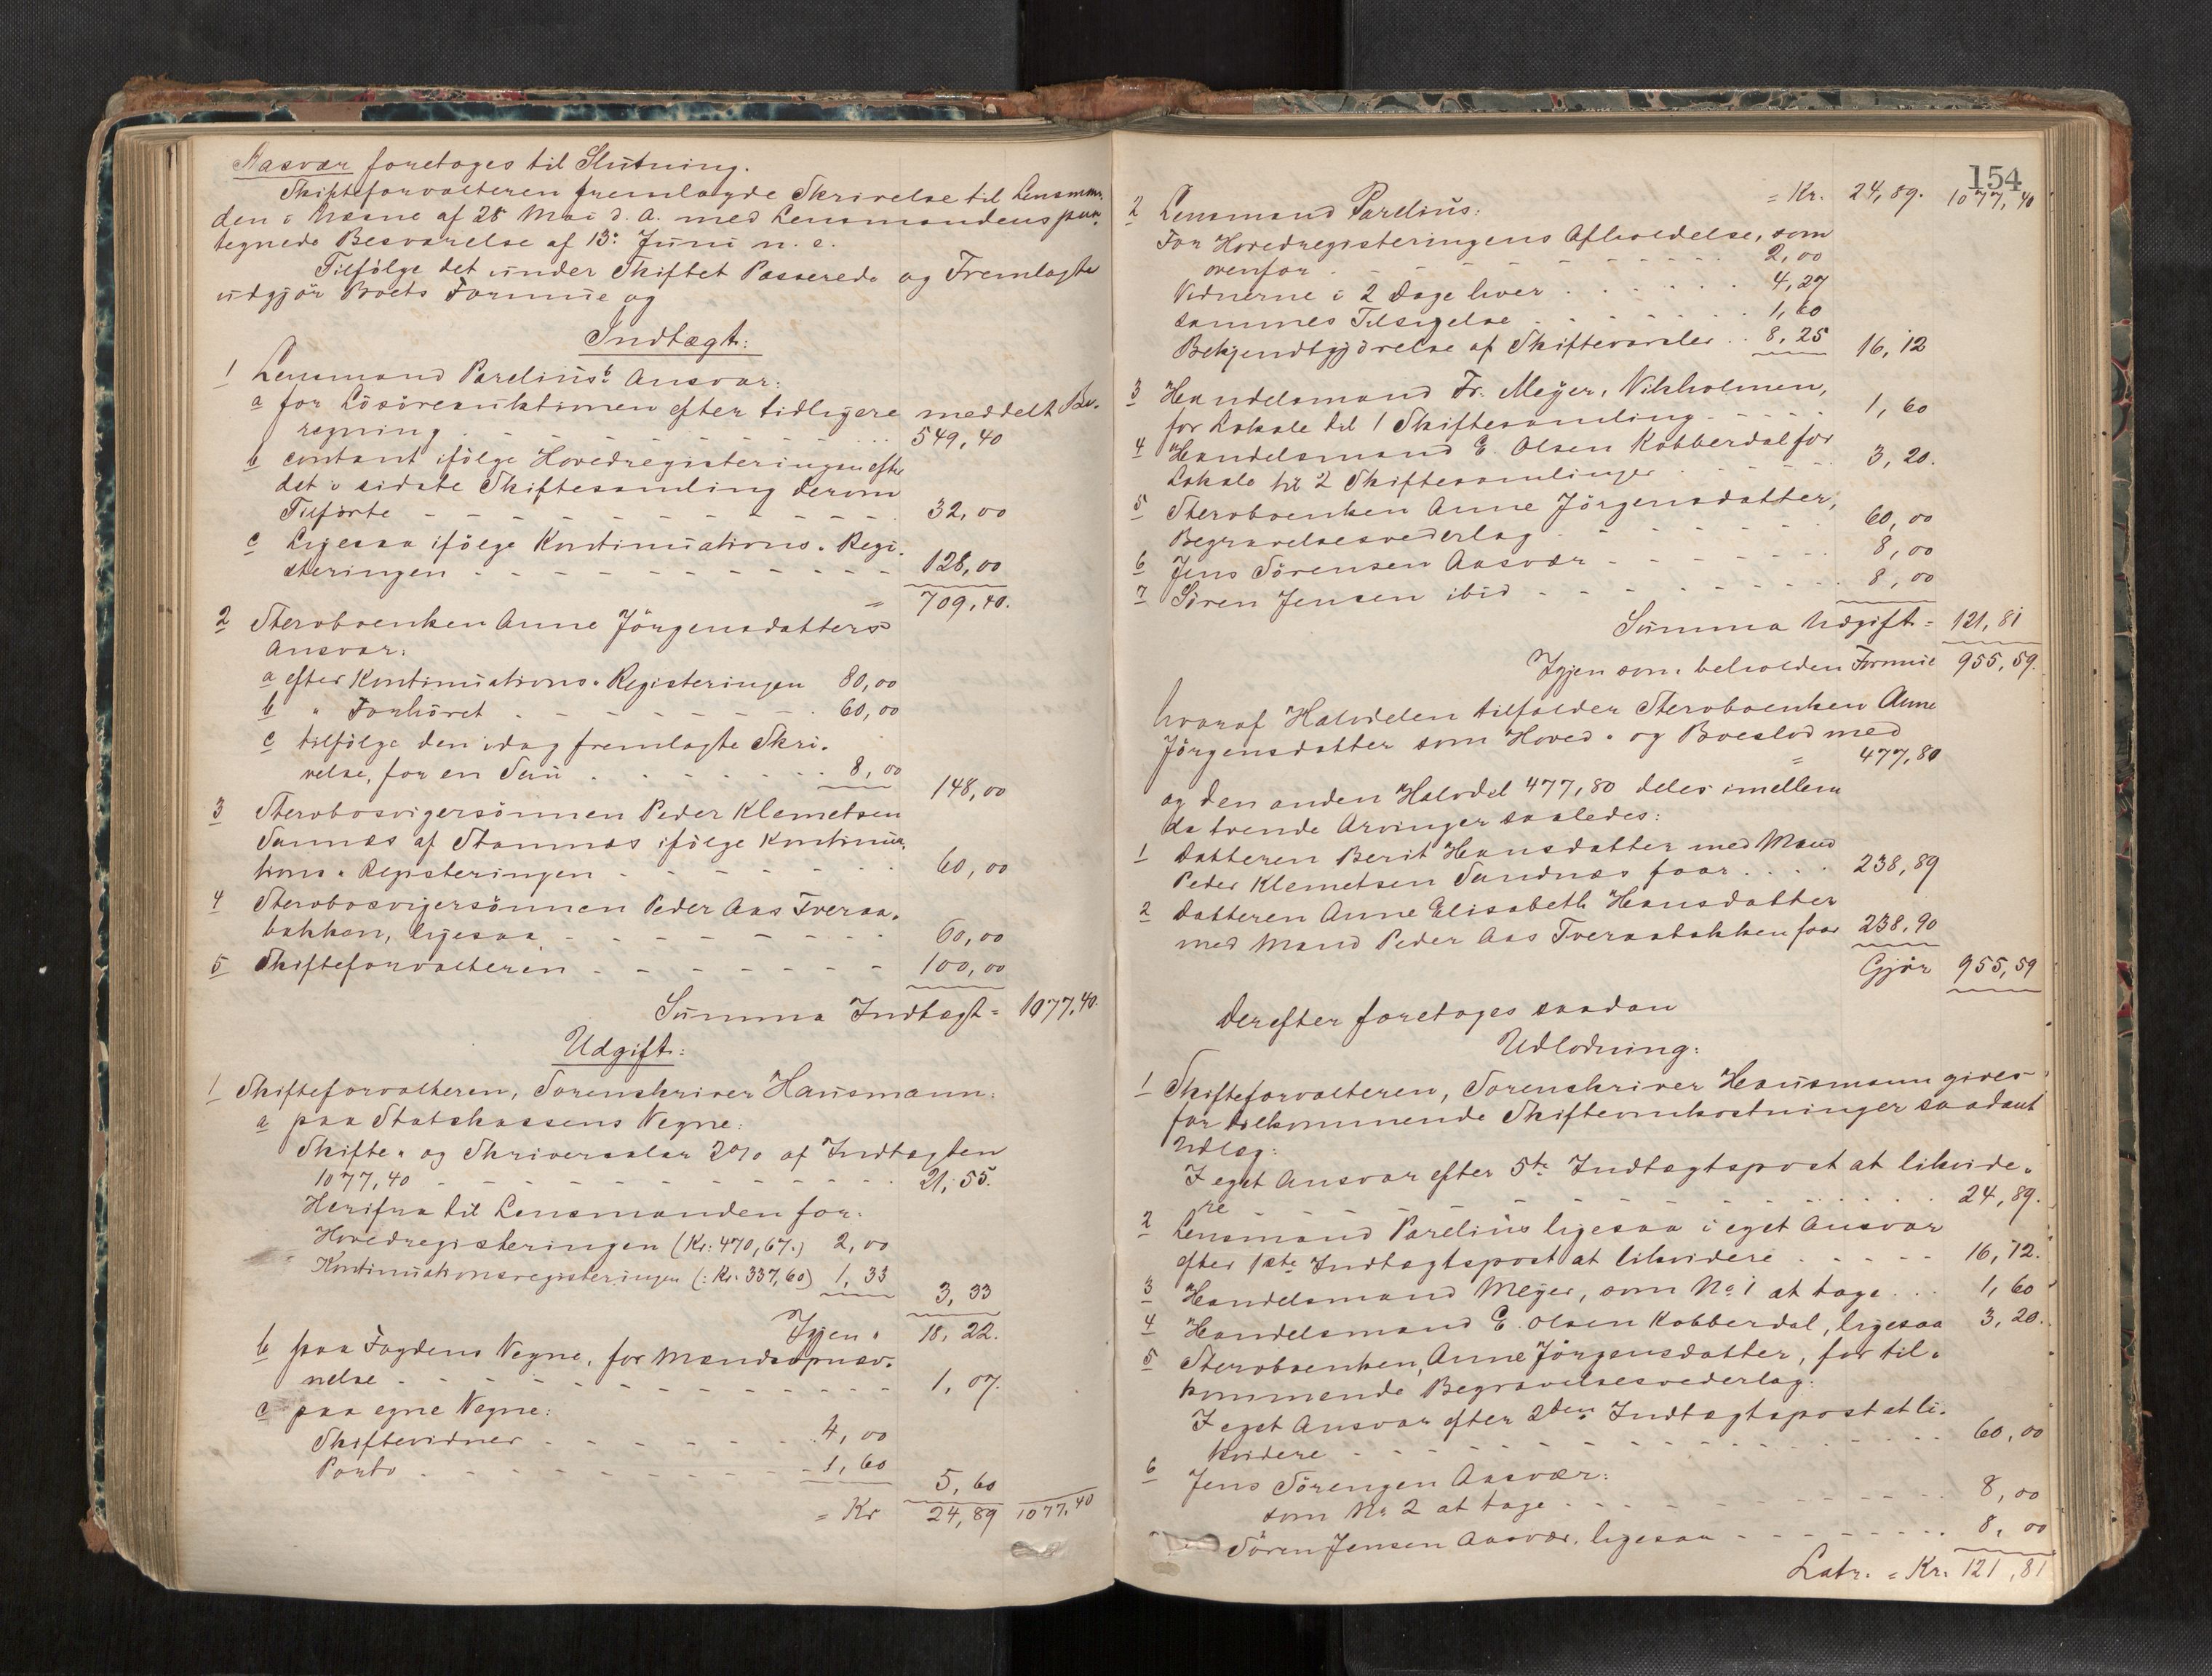 Aasvær foretages til Slutning.
Skifteforvalteren fremlagde Skrivelse til Lensman-
den i Næsne af 28 Mai d. A. med Lensmandens paa-
tegnede Besvarelse af 13: Juni n. e.
Tilfölge det under Skiftet Passerede og Fremlagte
udgjör Boets Formue og
Indtægt:
1 Lensmand Parelius's Ansvar:
a for Lösöreauktionen efter tidligere meddelt Be-
regning . . . 549,40
b contant ifölge Hovedregisteringen efter
det i sidste Skiftesamling derom
Tilförte - - - 32,00
c Ligesaa ifölge Kontinuations-Regi-
steringen - - - 128,00
= 709,40.
2 Stervboenken Anne Jörgensdatters
Ansvar:
a efter Kontinuations-Registeringen 80,00
b " Forhöret - - - 60,00
c tilfölge den idag fremlagte Skri-
velse, for en Sau . . . 8,00
148,00
3 Stervbosvigersönnen Peder Klemetsen
Sannæs af Stamnæs ifölge Kontinua-
tions-Registeringen - - - 60,00
4 Stervbosvigersönnen Peder Aas Tveraa-
bakken, ligesaa - - - 60,00
5 Skifteforvalteren - - - 100,00
Summa Indtægt = 1077,40.
Udgift:
1 Skifteforvalteren, Sorenskriver Hausmann:
a paa Statskassens Vegne:
Skifte- og Skriversalær 2% af Indtægten
1077,40 - - - 21,55.
Herifra til Lensmanden for:
Hovedregisteringen (Kr: 470,67.) 2,00
Kontinuationsregisteringen (: Kr. 337,60) 1,33
3,33
Igjen = 18,22.
b paa Fogdens Vegne, for Mandsopnæv-
nelse - - - 1,07.
c paa egne Vegne:
Skiftevidner - - - 4,00
Porto - - - 1,60
5,60
= Kr 24,89 1077,40
154
= Kr. 24,89. 1077,40
2 Lensmand Parelius:
For Hovedregisteringens Afholdelse, som
ovenfor - - - 2,00
Vidnerne i 2 Dage hver . . . 4,27
Sammes Tilsigelse - - - 1,60
Bekjendtgjörelse af Skiftevarsler . . 8,25
16,12
3 Handelsmand Fr. Meyer, Vikholmen,
for Lokale til 1 Skiftesamling - - - 1,60
4 Handelsmand E. Olsen Kobberdal for
Lokale til 2 Skiftesamlinger - - - 3,20.
5 Stervboenken Anne Jörgensdatter,
Begravelsesvederlag - - - 60,00
6 Jens Sörensen Aasvær - - - 8,00
7 Sören Jensen ibid - - - 8,00
Summa Udgift = 121,81
Igjen som beholden Formue 955,59.
hvoraf Halvdelen tilfalder Stervboenken Anne
Jörgensdatter som Hoved- og Boeslod med
= 477,80
og den anden Halvdel 477,80 deles imellem
de tvende Arvinger saaledes:
1 Datteren Berit Hansdatter med Mand
Peder Klemetsen Sandnæs faar . . . 238,89
2 Datteren Anne Elisabeth Hansdatter
med Mand Peder Aas Tveraabakken faar 238,90
Gjör 955,59
Derefter foretages saadan
Udlodning:
1 Skifteforvalteren, Sorenskriver Hausmann gives
for tilkommende Skifteomkostninger saadant
Udlæg:
I eget Ansvar efter 5te Indtægtspost at likvide-
re - - - 24,89.
2 Lensmand Parelius ligesaa i eget Ansvar
efter 1ste Indtægtspost at likvidere - - - 16,12.
3 Handelsmand Meyer, som No 1 at tage . . . 1,60
4 Handelsmand E. Olsen Kobberdal, ligesaa 3,20.
5 Stervboenken, Anne Jörgensdatter, for til-
kommende Begravelsesvederlag:
I eget Ansvar efter 2den Indtægtspost at li-
kvidere - - - 60,00
6 Jens Sörensen Aasvær:
som No 2 at tage - - - 8,00
Sören Jensen Aasvær, ligesaa - - - 8,00
Latr. = Kr. 121,81